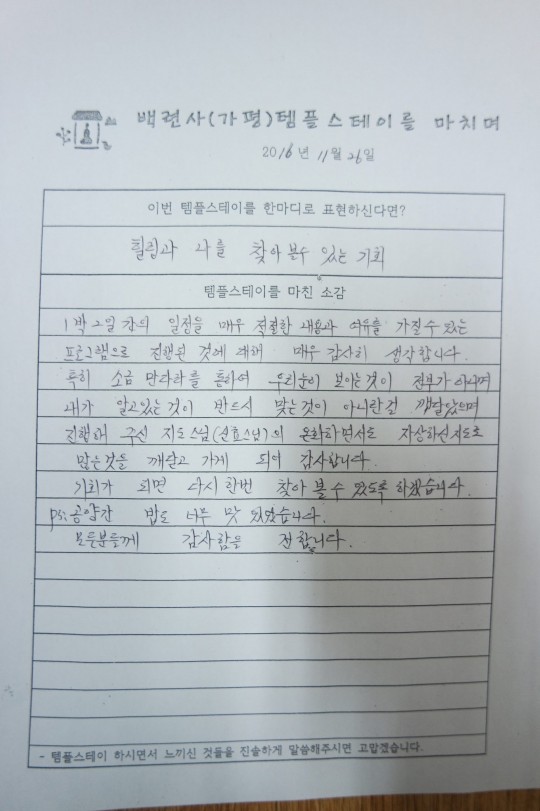 백련사(가평)템플스테이를 마치며
2016년 11월 26일
이번 템플스테이를 한마디로 표현하신다면?
힐링과 나를 찾아 볼수 있는 기회
템플스테이를 마친 소감
1박2일간의 일정을 매우 적절한 내용과 여유를 가질 수 있는
프로그램으로 진행된 것에 대해 매우 감사히 생각합니다.
특히 소금 만다라를 통하여 우리눈이 보이는것이 전부가 아니며
내가 알고있는것이 반드시 맞는것이 아니란걸 깨달았으며
진행해 주신 지도스님(선효스님)의 온화하면서도 자상하신지도로
많은것을 깨닫고 가게 되어 감사합니다.
기회가 되면 다시한번 찾아 볼 수 있도록 하겠습니다.
ps: 공양간 밥도 너무 맛있었습니다.
모든분들께 감사함을 전합니다.
- 템플스테이 하시면서 느끼신 것들을 진솔하게 말씀해주시면 고맙겠습니다.